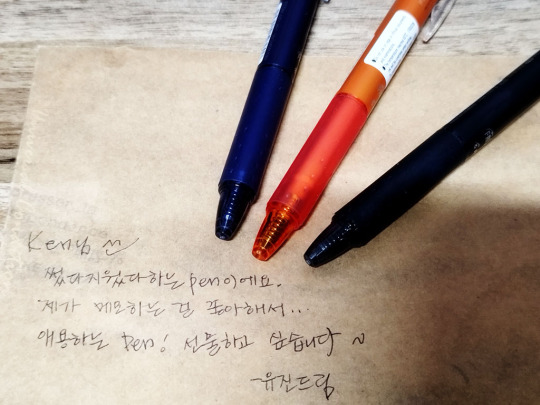 Ken님 ^^
썼다지웠다하는 pen이에요.
제가 메모하는 걸 좋아해서...
애용하는 pen! 선물하고 싶습니다 ~
-유진드림